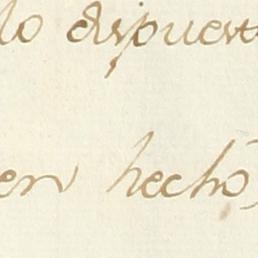 lo dispuest
en hecho,